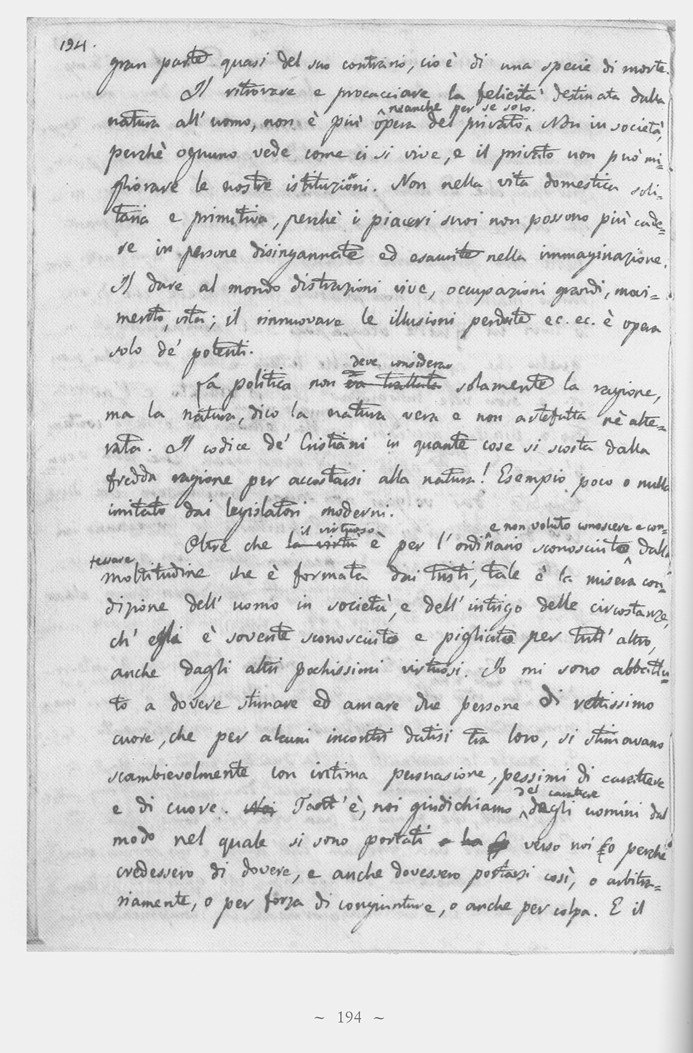 194.
gran parte quasi del suo contrario, cioè di una specie di morte.
Il ritrovare e procacciare la felicità destinata dalla
neanche per se solo.
natura all'uomo, non è più opera del privato. Non in società,
perchè ognuno vede come ci si vive, e il privato non può mi-
gliorare le nostre istituzioni. Non nella vita domestica soli-
taria e primitiva, perchè i piaceri suoi non possono più cade-
re in persone disingannate ed esaurite nella immaginazione.
Il dare al mondo distrazioni vive, occupazioni grandi, movi-
mento, vita; il rinnuovare le illusioni perdute ec. ec. è opera
solo de' potenti.
deve considerar
La politica non solamente la ragione,
ma la natura, dico la natura vera e non artefatta nè alte-
rata. Il codice de' Cristiani in quante cose si scosta dalla
fredda ragione per accostarsi alla natura! Esempio poco o nulla
imitato dai legislatori moderni.
il virtuoso e non voluto conoscere e con-
Oltre che la virtù è per l'ordinario sconosciuto dalla
fessare
moltitudine che è formata dai tristi, tale è la misera con-
dizione dell'uomo in società, e dell'intrigo delle circostanze,
ch'egli è sovente sconosciuto e pigliato per tutt'altro,
anche dagli altri pochissimi virtuosi. Io mi sono abbattu-
to a dovere stimare ed amare due persone di rettissimo
cuore, che per alcuni incontri datisi tra loro, si stimavano
scambievolmente con intima persuasione, pessimi di carattere
e di cuore. Noi Tant'è, noi giudichiamo degli uomini dal
del carattere
modo nel quale si sono portati verso noi o perchè
credessero di dovere, e anche dovessero portarsi così, o arbitra-
riamente, o per forza di congiunture, o anche per colpa. E il
~ 194 ~